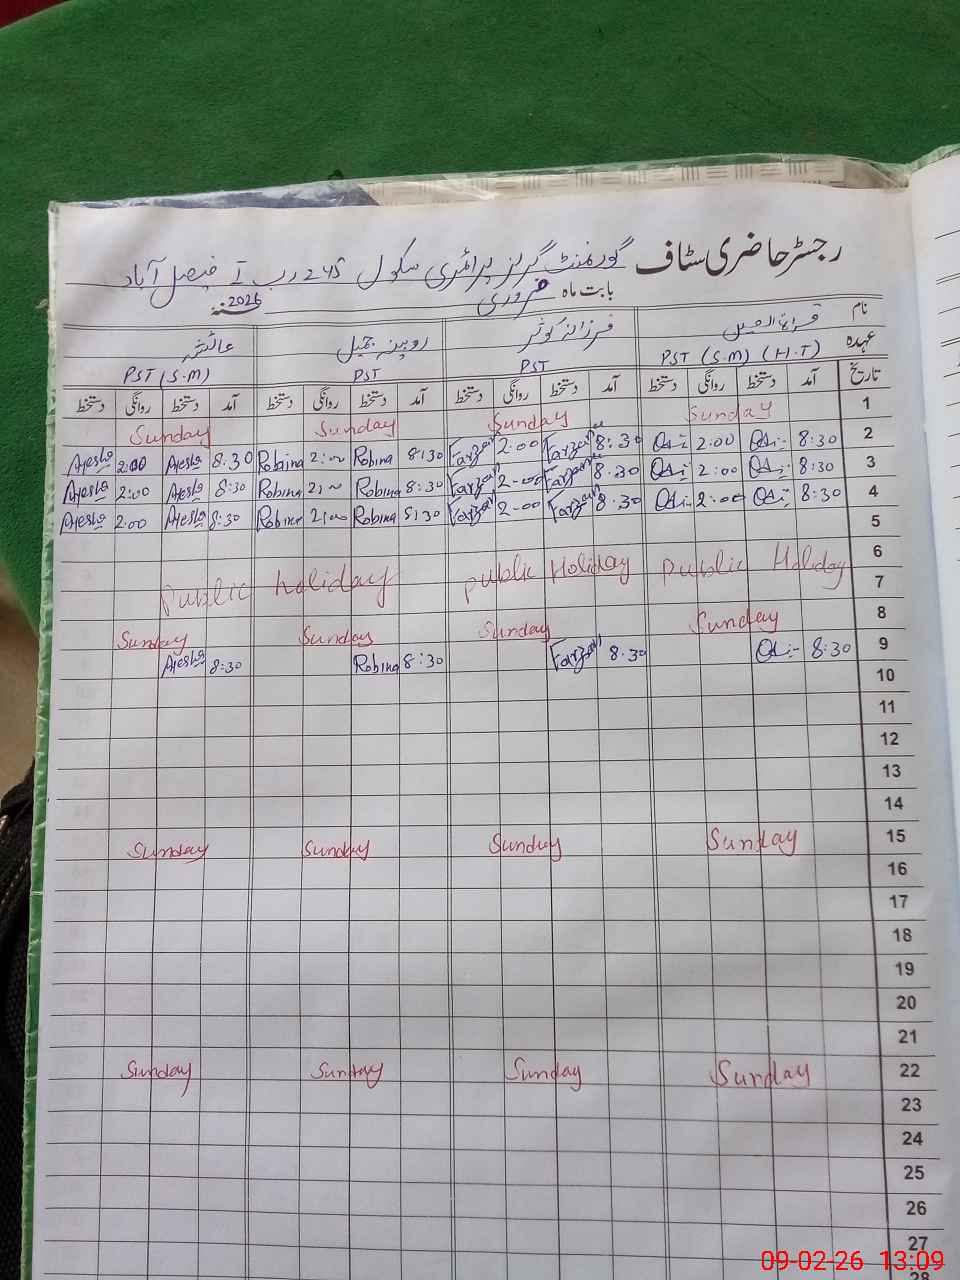 رجسٹر حاضری سٹاف گورنمنٹ گرلز پرائمری سکول 245 رب I فیصل آباد
بابت ماہ فروری 2026
نام قراۃ العین فرزانہ کوثر روبینہ جمیل عائشہ
عہدہ PST (S.M) (H.T) PST PST PST (S.M)
تاریخ آمد دستخط روانگی دستخط آمد دستخط روانگی دستخط آمد دستخط روانگی دستخط آمد دستخط روانگی دستخط
Sunday Sunday Sunday Sunday 1
Ayesha 2:00 Ayesha 8:30 Robina 2:00 Robina 8:30 Farzana 2:00 Farzana 8:30 2:00 8:30 2
Ayesha 2:00 Ayesha 8:30 Robina 2:00 Robina 8:30 Farzana 2-00 Farzana 8.30 2:00 8:30 3
Ayesha 2:00 Ayesha 8:30 Robina 2:00 Robina 8:30 Farzana 2-00 Farzana 8.30 2:00 8:30 4
5
Public holiday public Holiday Public Holiday 6
7
Sunday Sunday Sunday Sunday 8
Ayesha 8:30 Robina 8:30 Farzana 8.30 8:30 9
10
11
12
13
14
Sunday Sunday Sunday Sunday 15
16
17
18
19
20
21
Sunday Sunday Sunday Sunday 22
23
24
25
26
27
28
09-02-26 13:09